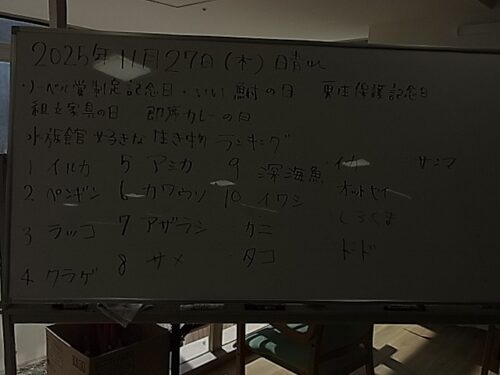 2025年11月27日(木)晴れ
・ノーベル賞制定記念日・いい鮒の日 更生保護記念日
組立家具の日 即席カレーの日
水族館 好きな生き物ランキング
1 イルカ 5 アシカ 9 深海魚 イカ サンマ
2 ペンギン 6 カワウソ 10 イワシ オットセイ
3 ラッコ 7 アザラシ カニ しろくま
4 クラゲ 8 サメ タコ トド